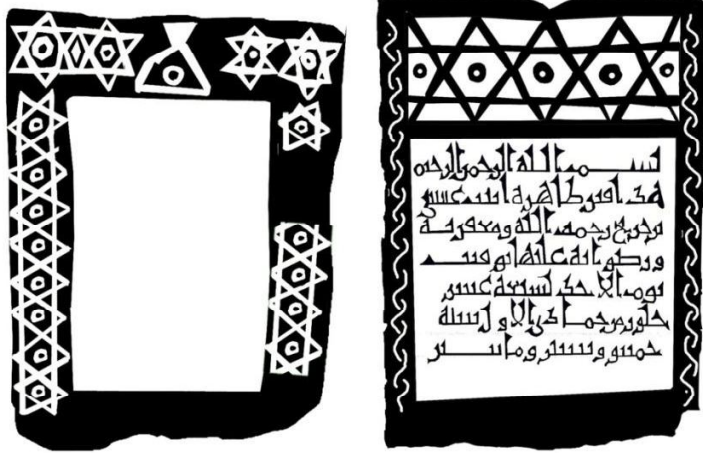 بسم الله الرحمن الرحيم
هذا قبر طاهرة ابنت عيسى
رحمت الله ومغفرته
ورضوانه عليها توفيت
يوم الاحد لسبعة عشر
خلون من جمادى الاول سنة
خمس وستين ومايتين